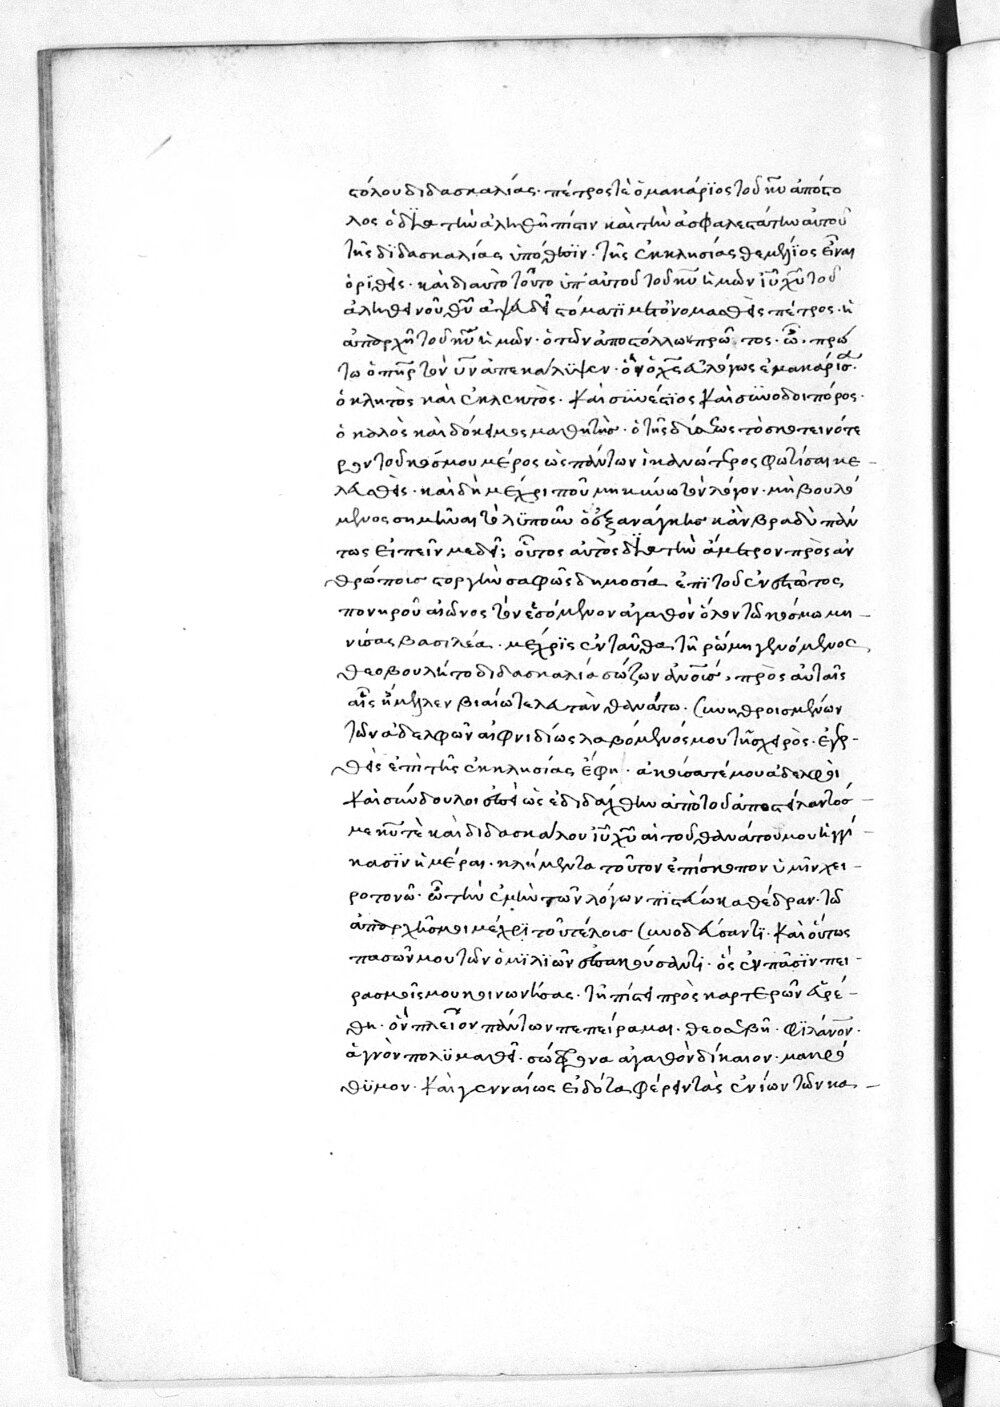 στόλου διδασκαλίας· πέτρος τὲ ὁ μακάριος τοῦ κῦ ἀπόστο
λος ὁ διὰ τὴν ἀληθῆ πίστιν καὶ τὴν ἀσφαλεστάτην αὐτοῦ
τῆς διδασκαλίας ὑπόθεσιν· τῆς ἐκκλησίας θεμέλιος εἶναι
ὁρισθεὶς· καὶ δι αὐτὸ τοῦτο ὑπ αὐτοῦ τοῦ κῦ ἡμῶν ιῦ χῦ τοῦ
ἀληθινοῦ θῦ ἀψευδεῖ στόματι μετονομασθεὶς πέτρος· ἡ
ἀπαρχὴ τοῦ κῦ ἡμῶν· ὁ τῶν ἀποστόλλων πρῶτος· ὧ πρώ
τω ὁ πηρ τὸν υν ἀπεκάλυψεν· ὃν ὁ χς εὐλόγως ἐμακάρισεν·
ὁ κλητὸς καὶ ἐκλεκτὸς· καὶ συνέστιος καὶ συνοδοιπόρος·
ὁ καλὸς καὶ δόκιμος μαθητὴς· ὁ τῆς δύσεως τὸ σκοτεινότε
ρον τοῦ κόσμου μέρος ὡς πάντων ἱκανώτερος φωτίσαι κε
λευσθεὶς· καὶ δὴ μέχρι ποῦ μηκύνω τὸν λόγον· μὴ βουλό
μενος σημῆναι τὸ λυποῦν ὃ ἐξ ανάγκης κἂν βραδὺ πάν
τως εἰπεῖν με δεῖ; οὗτος αὐτὸς διὰ τὴν ἄμετρον πρὸς ἀν
θρώποις στοργὴν σαφῶς δημοσία ἐπὶ τοῦ ἐνεστῶτος
πονηροῦ αἰῶνος τὸν ἐσόμενον ἀγαθὸν ὅλον τῶ κόσμω μη
νύσας βασιλέα· μέχρις ἐνταῦθα τῆ ρώμη γενόμενος
θεοβουλήτο διδασκαλία σώζων ἀνους, πρὸς αὐταῖς
αἷς ἤμελλεν βιαίω τελευτᾶν θανάτω· συνηθροισμένων
τῶν ἀδελφῶν αἰφνιδίως λαβόμενός μου τῆς χειρὸς· ἐγερ
θεὶς ἐπὶ τῆς ἐκκλησίας ἔφη· ἀκούσατέ μου ἀδελφοὶ
καὶ σύνδουλοι ἐπεὶ ὡς ἐδιδάχθην ἀπὸ τοῦ ἀποστείλαντός
με κῦ τὲ καὶ διδασκάλου ιῦ χῦ αἱ τοῦ θανάτου μου ἠγγί
κασιν ἡμέραι· κλήμεντα τοῦτον ἐπίσκοπον ὑμῖν χει
ροτονῶ· ὧ τὴν ἐμὴν τῶν λόγων πιστεύω καθέδραν· τῶ
ἀπαρχῆς μοι μέχρι τοῦ τέλους συνοδεύσαντι· καὶ οὕτως
πασῶν μου τῶν ὁμιλιῶν ἐπακούσαντι· ὃς ἐν πᾶσιν πει
ρασμοῖς μου κοινωνήσας· τῆ πίστει προσκαρτερῶν εὑρέ
θη· ὃν πλεῖον πάντων πεπείραμαι· θεοσεβῆ· φιλάνον·
ἁγνὸν πολυμαθεῖ· σώφρονα ἀγαθὸν δίκαιον· μακρό
θυμον· καὶ γενναίως εἰδότα φέρειν τὰς ἐνίων τῶν κα